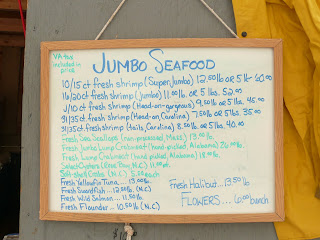 VA tax
included in
price
JUMBO SEAFOOD
10/15 ct fresh shrimp (Super Jumbo) 12.50 lb or 5 lb 60.00
16/20 ct fresh shrimp (jumbo) 11.00 lb. or 5 lbs. 52.00
(Head-on-gorgeous) 9.50 lb or 5 lbs. 45.00
31/35 ct fresh shrimp (Head on, Carolina) 7.50 lb or 5 lbs. 35.00
31/35 ct fresh shrimp (tails, Carolina) 8.50 lb or 5 lbs. 40.00
Fresh Sea Scallops (non-processed, Mass.) 13.00 lb.
Fresh Jumbo Lump Crabmeat (hand-picked, Alabama) 26.00 lb.
Fresh Lump Crabmeat (hand picked, Alabama) 18.00 pt.
Select Oysters
Soft-shell Crabs (N.C.) 5.00 each
Fresh Yellowfin Tuna ... 13.00 lb.
Fresh Swordfish ... 12.00 lb. (N.C.)
Fresh Wild Salmon ... 11.50 lb
Fresh Flounder .. 10.50 lb (N.C)
Fresh Halibut... 13.50 lb
FLOWERS.... 6.00 bunch